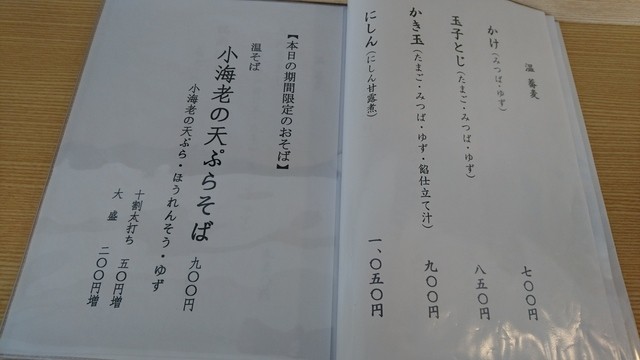 温蕎麦
かけ(みつば・ゆず) 七〇〇円
玉子とじ(たまご・みつば・ゆず) 八五〇円
かき玉(たまご・みつば・ゆず・餡仕立て汁) 九〇〇円
にしん(にしん甘露煮) 一、〇五〇円
【本日の期間限定のおそば】
温そば
小海老の天ぷらそば 九〇〇円
小海老の天ぷら・ほうれんそう・ゆず
十割太打ち 五〇円増
大盛 二〇〇円増